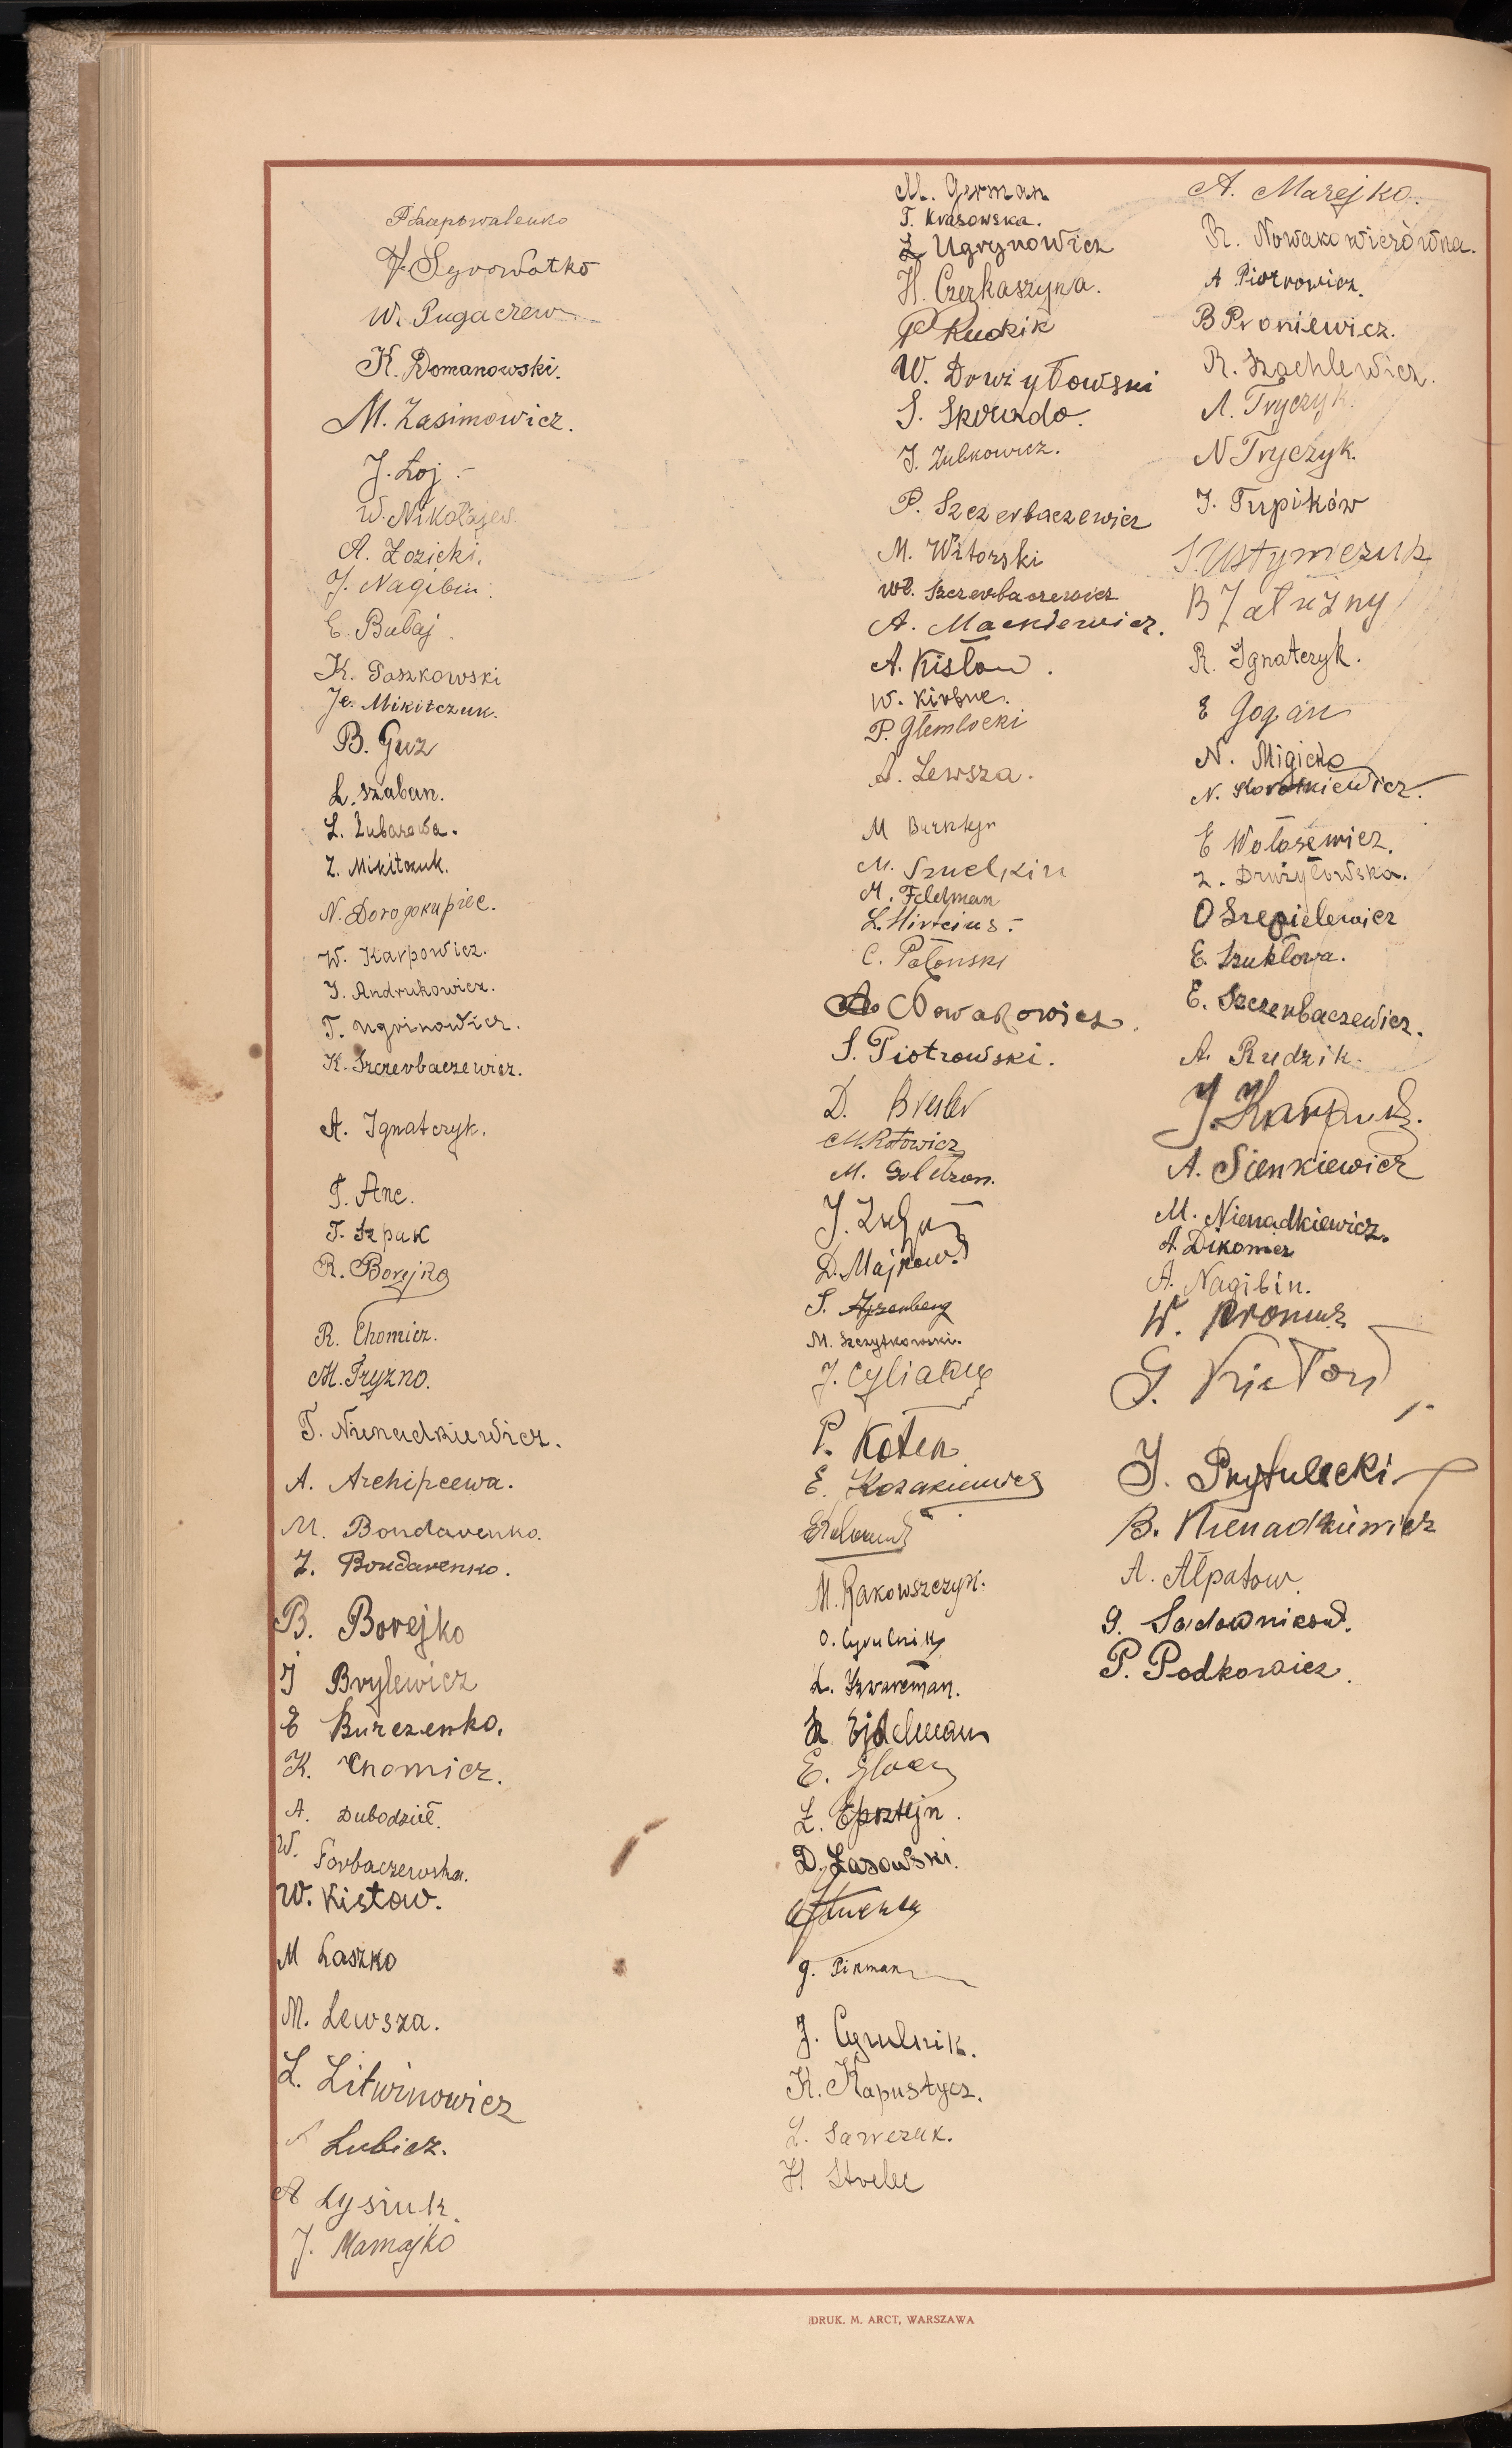 P Szapowalenko
J. Syrowatko
W. Pugaczew
K. Domanowski.
M. Zasimowicz.
J. Łoj.
W. Nikołajew.
A. Łozicki.
J. Nagibin.
E. Bułaj.
K. Paszkowski
Je. Mikitczuk.
B. Guz
L. Szaban.
L. Zubarewa.
Z. Mikitczuk.
N. Dorogokupiec.
W. Karpowicz.
J. Andrukowicz.
T. Ugrinowicz.
K. Szczerbaczewicz.
A. Ignatczyk.
T. Anc.
T. Szpak
R. Borejko
R. Chomicz.
M. Tryzno.
T. Nienadkiewicz.
A. Archipcewa.
M. Bondarenko.
Z. Bondarenko.
B. Borejko
J Brylewicz
E Burczenko.
K. Chomicz.
A. Dubodzieł.
W. Gorbaczewska.
W. Kisłow.
M Łaszko
M. Lewsza.
L. Litwinowicz
Lubicz.
A Łysiuk.
J. Mamajko
M. German
T. Krasowska.
Z Ugrynowicz
H. Czerkaszyna.
P Rudzik
W. Dowzyłowski
S. Skurado.
J. Zubkowicz.
P. Szczerbaczewicz
M. Witorski
Wł. Szczerbaczewicz
A. Mackiewicz.
A. Kisłow.
W. Kirbuc.
P. Głembocki
A. Lewsza.
M Bursztyn
M. Sznelkin
M. Feldman
L. Hircius.
C. Połonski
A. Nowakowicz.
S. Piotrowski.
D. Bresler
M. Rotowicz
M. Goldzon.
D. Majkow.
S. Ajzenberg
M. Szczytkowski.
P. Koten
E. Kozakiewicz
M. Rakowszczyk.
O. Cyrulnik
L. Szwarcman.
R. Ejdelman
Z. Epsztejn.
D. Łasowski.
G. Pinman
J. Cyrulnik.
K. Kapustycz.
L. Sawczuk.
H Strelec
A. Marejko.
R. Nowakowiczówna.
A Piotrowicz.
B Proniewicz.
R. Szachlewicz.
A. Tryczyk.
N Tryczyk.
J. Turpików
S. Ustymczuk
B Załużny
R. Ignatczyk.
E Gogan
N. Migicko
N. Korotkiewicz.
E Wołosewicz.
Z. Drużyłowska.
O Szepielewicz
E. Szukłowa.
E. Szczerbaczewicz.
A. Rudzik.
J. Karpuk.
A. Sienkiewicz
M. Nienadkiewicz.
A. Dikowicz
A. Nagibin.
J. Prytulecki
B. Nienadkiewicz
A. Ałpatow.
G. Sadownicow.
P. Podkowicz.
DRUK. M. ARCT, WARSZAWA